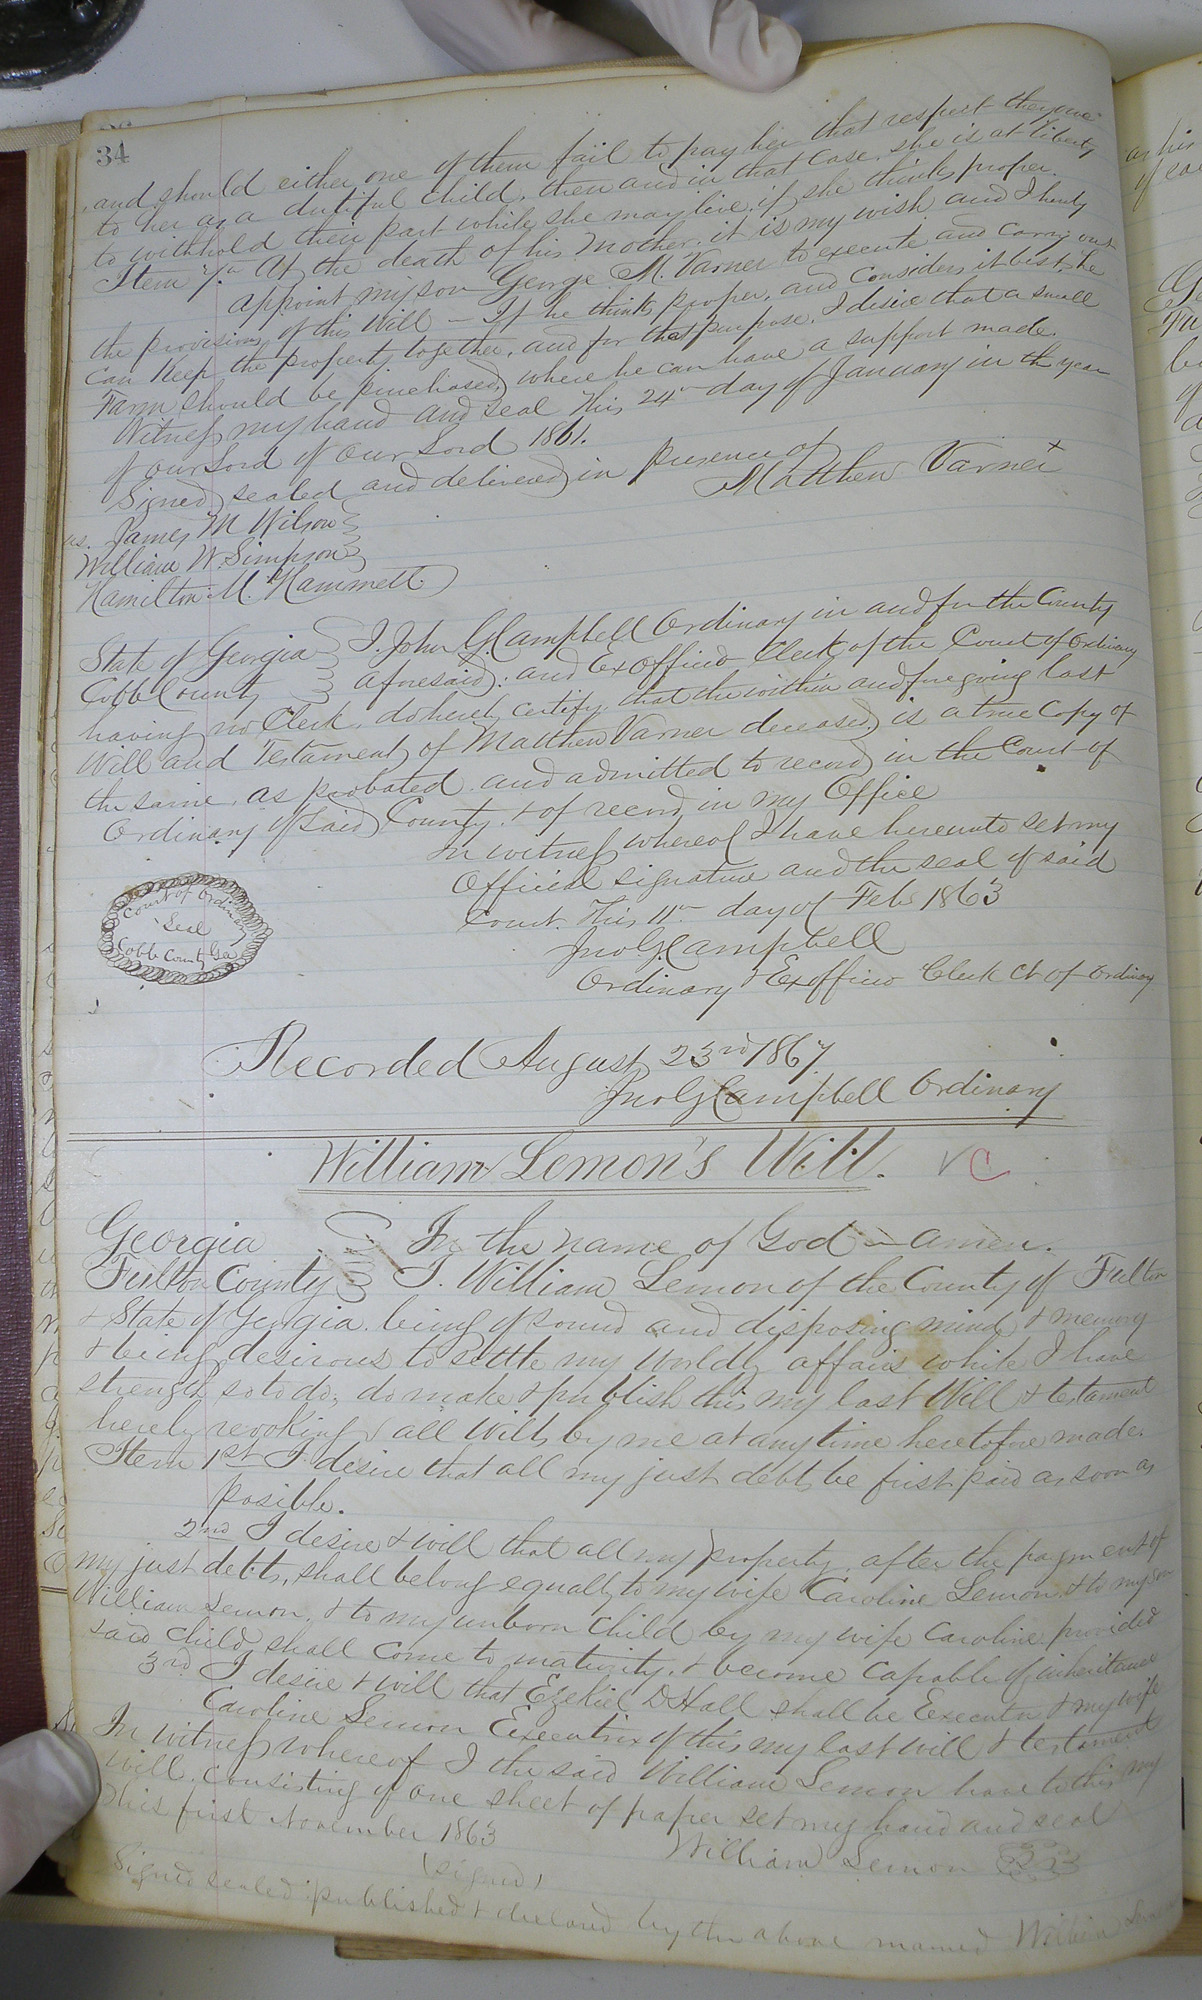 34
and should either one of them fail to pay her that respect they owe
to her as a dutiful child, then and in that case she is at liberty
to withhold their part while she may live, if she thinks proper.
Item 7th At the death of his Mother, it is my wish and I hereby
appoint my son George M. Varner to execute and carry out
the provisions of this Will - If he thinks proper, and considers it best, he
can keep the property together, and for that purpose, I desire that a small
Farm should be purchased, where he can have a support made.
Witness my hand and seal This 24th day of January in the year
of our Lord of our Lord 1861.
Signed, sealed and delivered in presence of
Matthew Varner x
us. James M Wilson
William W. Simpson
Hamilton M. Hammett
State of Georgia I. John G. Campbell Ordinary in and for the County
Cobb County aforesaid: and Exofficio Clerk of the Court of Ordinary
having no Clerk, do hereby certify, that the within and foregoing last
Will and Testament, of Matthew Varner deceased, is a true Copy of
the same, as probated and admitted to record, in the Court of
Ordinary of said County, & of record in my Office
In witness whereof I have hereunto set my
Official signature and the seal of said
Court. This 11th day of Feb 1863
Jno G. Campbell
Ordinary & Exofficio Clerk Ct of Ordinary
Court of Ordin
Seal
Cobb County Ga
Recorded August 23rd 1867.
Jno G Campbell Ordinary
William Lemon's Will. V C
Georgia In the name of God - amen.
Fulton County I. William Lemon of the County of Fulton
& State of Georgia, being of sound and disposing mind & memory
& being desirous to settle my worldly affairs while I have
strength so to do, do make & publish this my last Will & testament
hereby revoking all Wills by me at any time heretofore made.
Item 1st I desire that all my just debts be first paid as soon as
posible.
2nd I desire & will that all my property, after the payment of
my just debts, shall belong equally to my wife Caroline Lemon, & to my son
William Lemon, & to my unborn child by my wife Caroline provided
said child, shall come to maturity, & become capable of inheritance
3rd I desire & will that Ezekiel D Hall shall be Executor & my wife
Caroline Lemon Executrix of this my last will & testament
In witness whereof I the said William Lemon have to this my
will, consisting of one sheet of paper set my hand and seal
This first November 1863
William Lemon
(signed)
Signed sealed published & declared by the above named William Lemon